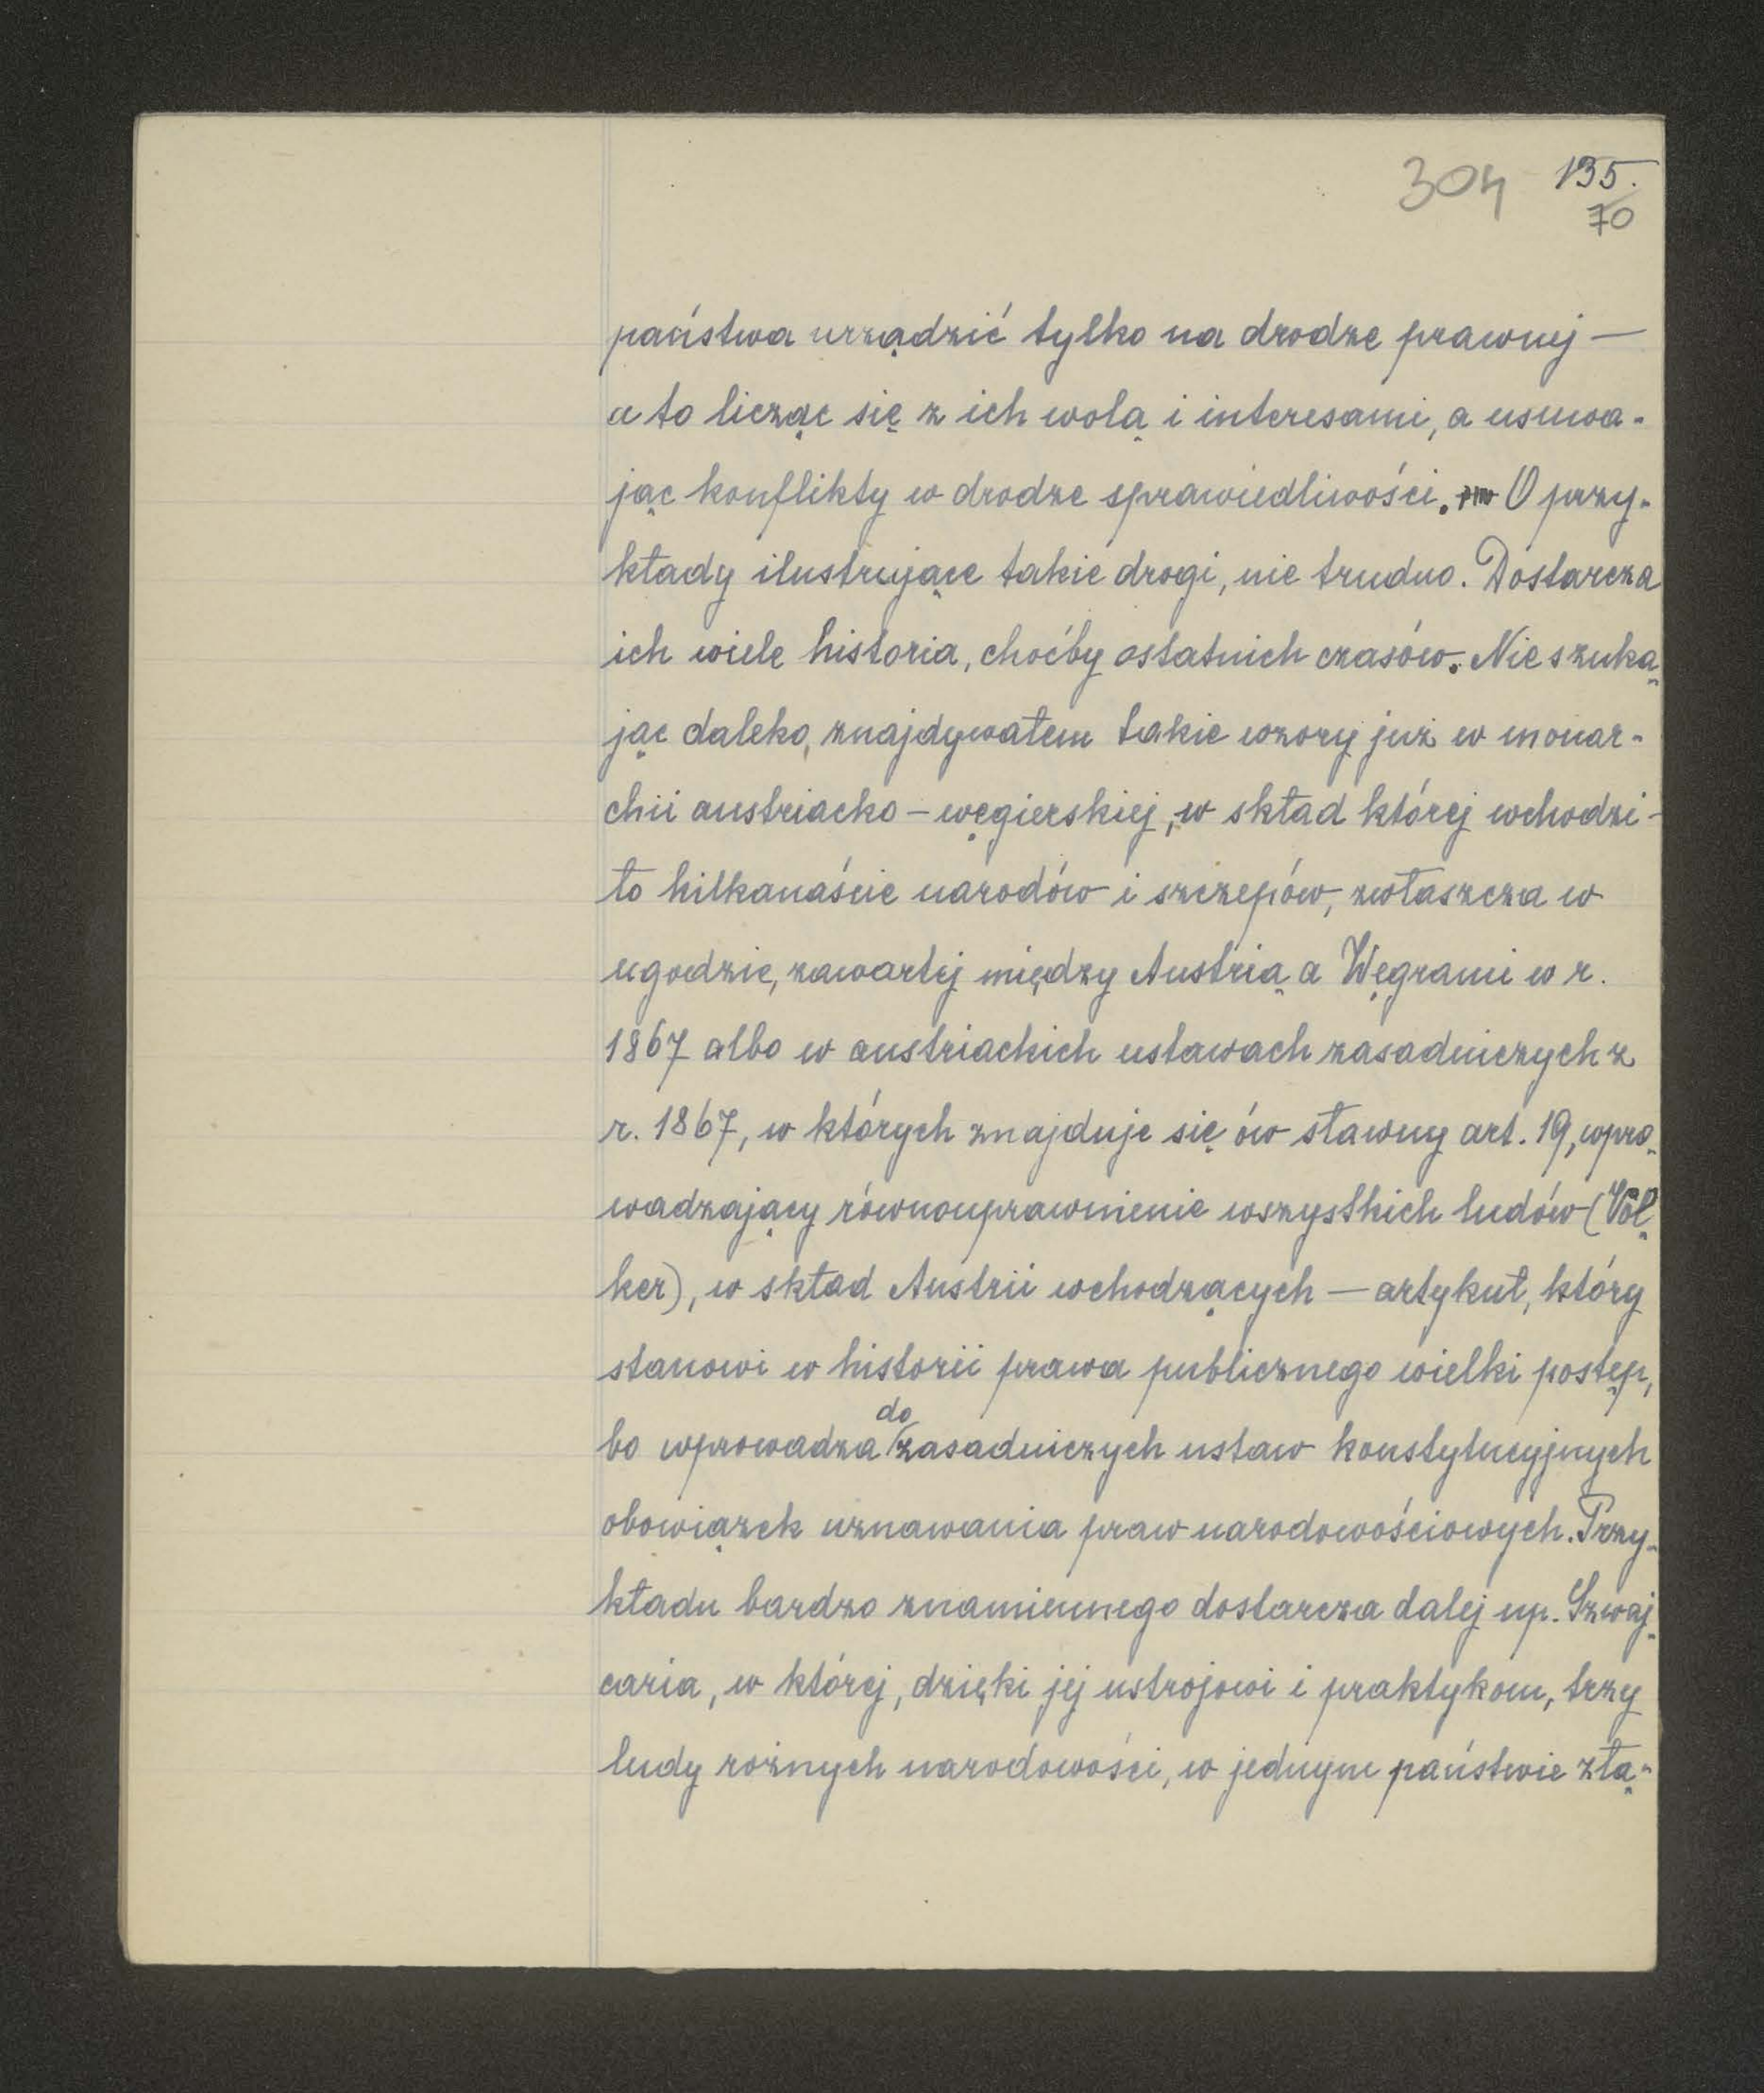 304 135.
70
państwa urządzić tylko na drodze prawnej —
a to licząc się z ich wolą i interesami, a usuwa-
jąc konflikty w drodze sprawiedliwości. O przy-
kłady ilustrujące takie drogi, nie trudno. Dostarcza
ich wiele historia, choćby ostatnich czasów. Nie szuka-
jąc daleko, znajdywałem takie wzory już w monar-
chii austriacko – węgierskiej, w skład której wchodzi-
ło kilkanaście narodów i szczepów, zwłaszcza w
ugodzie, zawartej między Austrią a Węgrami w r.
1867 albo w austriackich ustawach zasadniczych z
r. 1867, w których znajduje się ów sławny art. 19, wpro-
wadzający równouprawnienie wszystkich ludów (Völ-
ker), w skład Austrii wchodzących — artykuł, który
stanowi w historii prawa publicznego wielki postęp,
bo wprowadza do zasadniczych ustaw konstytucyjnych
obowiązek uznawania praw narodowościowych. Przy-
kładu bardzo znamiennego dostarcza dalej np. Szwaj-
caria, w której, dzięki jej ustrojowi i praktykom, trzy
ludy rożnych narodowości, w jednym państwie złą-